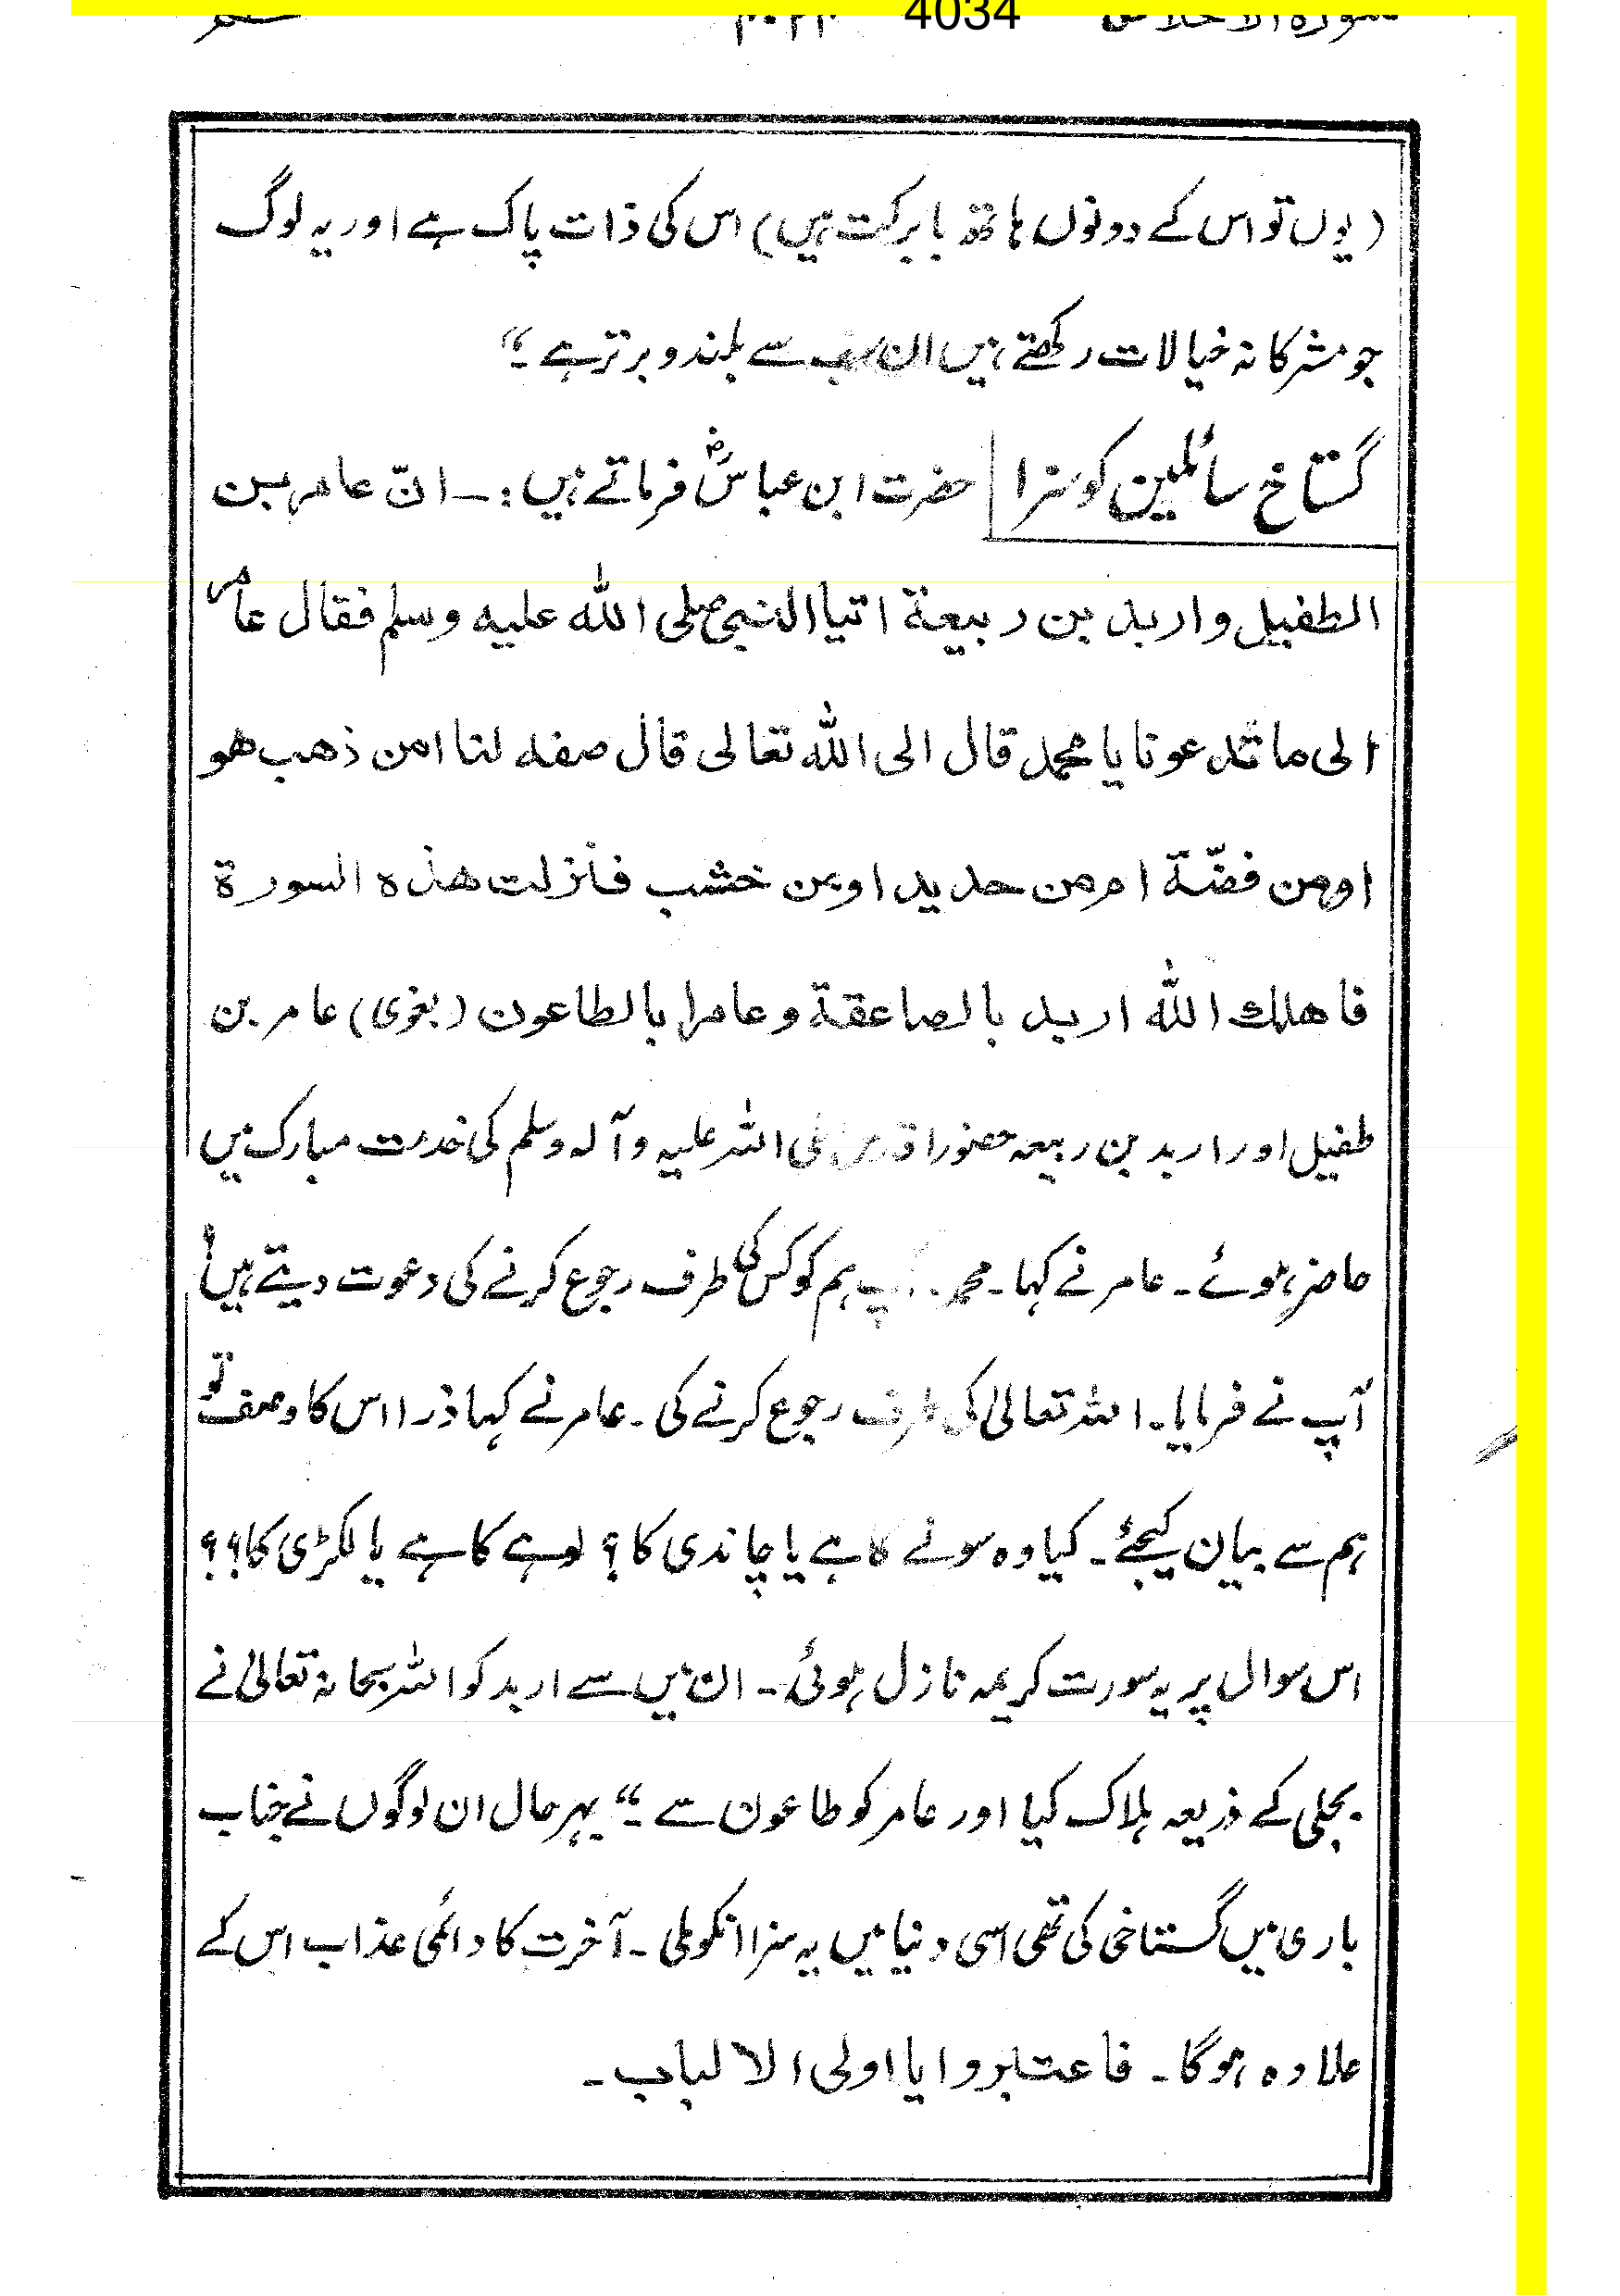 4034
(یوں تو اس کے دونوں ہاتھ بابرکت ہیں) اس کی ذات پاک ہے اور یہ لوگ
جو مشرکانہ خیالات رکھتے ہیں ان سب سے بلند و برتر ہے۔"
گستاخ سائلین کو سزا حضرت ابن عباسؓ فرماتے ہیں:۔ انّ عامر بن
الطفیل و اربد بن ربیعة اتیا النبی صلی الله علیه وسلم فقال عامر
الی ما تدعونا یا محمد قال الی الله تعالی قال صفه لنا امن ذهب هو
او من فضّة ام من حدید او من خشب فانزلت هذه السورة
فاهلك الله اربد بالصاعقة و عامرا بالطاعون (بغوی) عامر بن
طفیل اور اربد بن ربیعہ حضور اقدس صلی اللہ علیہ وآلہ وسلم کی خدمت مبارک میں
حاضر ہوئے۔ عامر نے کہا۔ محمد۔ آپ ہم کو کس کی طرف رجوع کرنے کی دعوت دیتے ہیں!
آپ نے فرمایا۔ اللہ تعالیٰ کی طرف رجوع کرنے کی۔ عامر نے کہا ذرا اس کا وصف تو
ہم سے بیان کیجئے۔ کیا وہ سونے کا ہے یا چاندی کا؟ لوہے کا ہے یا لکڑی کا؟؟
اس سوال پر یہ سورت کریمہ نازل ہوئی۔ ان میں سے اربد کو اللہ سبحانہ تعالیٰ نے
بجلی کے ذریعہ ہلاک کیا اور عامر کو طاعون سے۔" بہرحال ان لوگوں نے جناب
باری میں گستاخی کی تھی اسی دنیا میں یہ سزا انکو ملی۔ آخرت کا دائمی عذاب اس کے
علاوہ ہوگا۔ فاعتبروا یا اولی الالباب۔